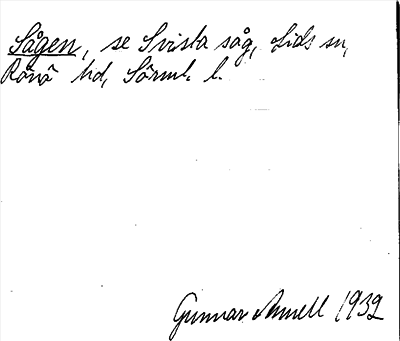 Sågen, se Svista såg, Lids sn,
Rönö hd, Sörml. l.
Gunnar Amell 1932